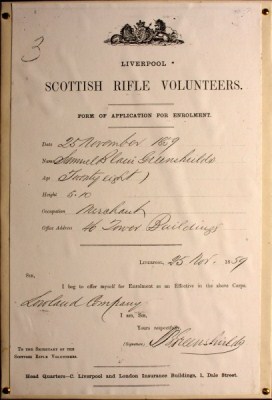 3
LIVERPOOL
SCOTTISH RIFLE VOLUNTEERS.
FORM OF APPLICATION FOR ENROLMENT.
Date 25 November 1859
Name Samuel Blain Greenshields
Age Twenty eight
Height 5.10
Occupation Merchant
Office Address 46 Tower Buildings
LIVERPOOL, 25 Nov. 1859
SIR,
I beg to offer myself for Enrolment as an Effective in the above Corps
Lowland Company
I am, Sir,
Yours respectfully,
(Signature) Greenshields
TO THE SECRETARY OF THE
SCOTTISH RIFLE VOLUNTEERS.
Head Quarters—C. Liverpool and London Insurance Buildings, 1, Dale Street.